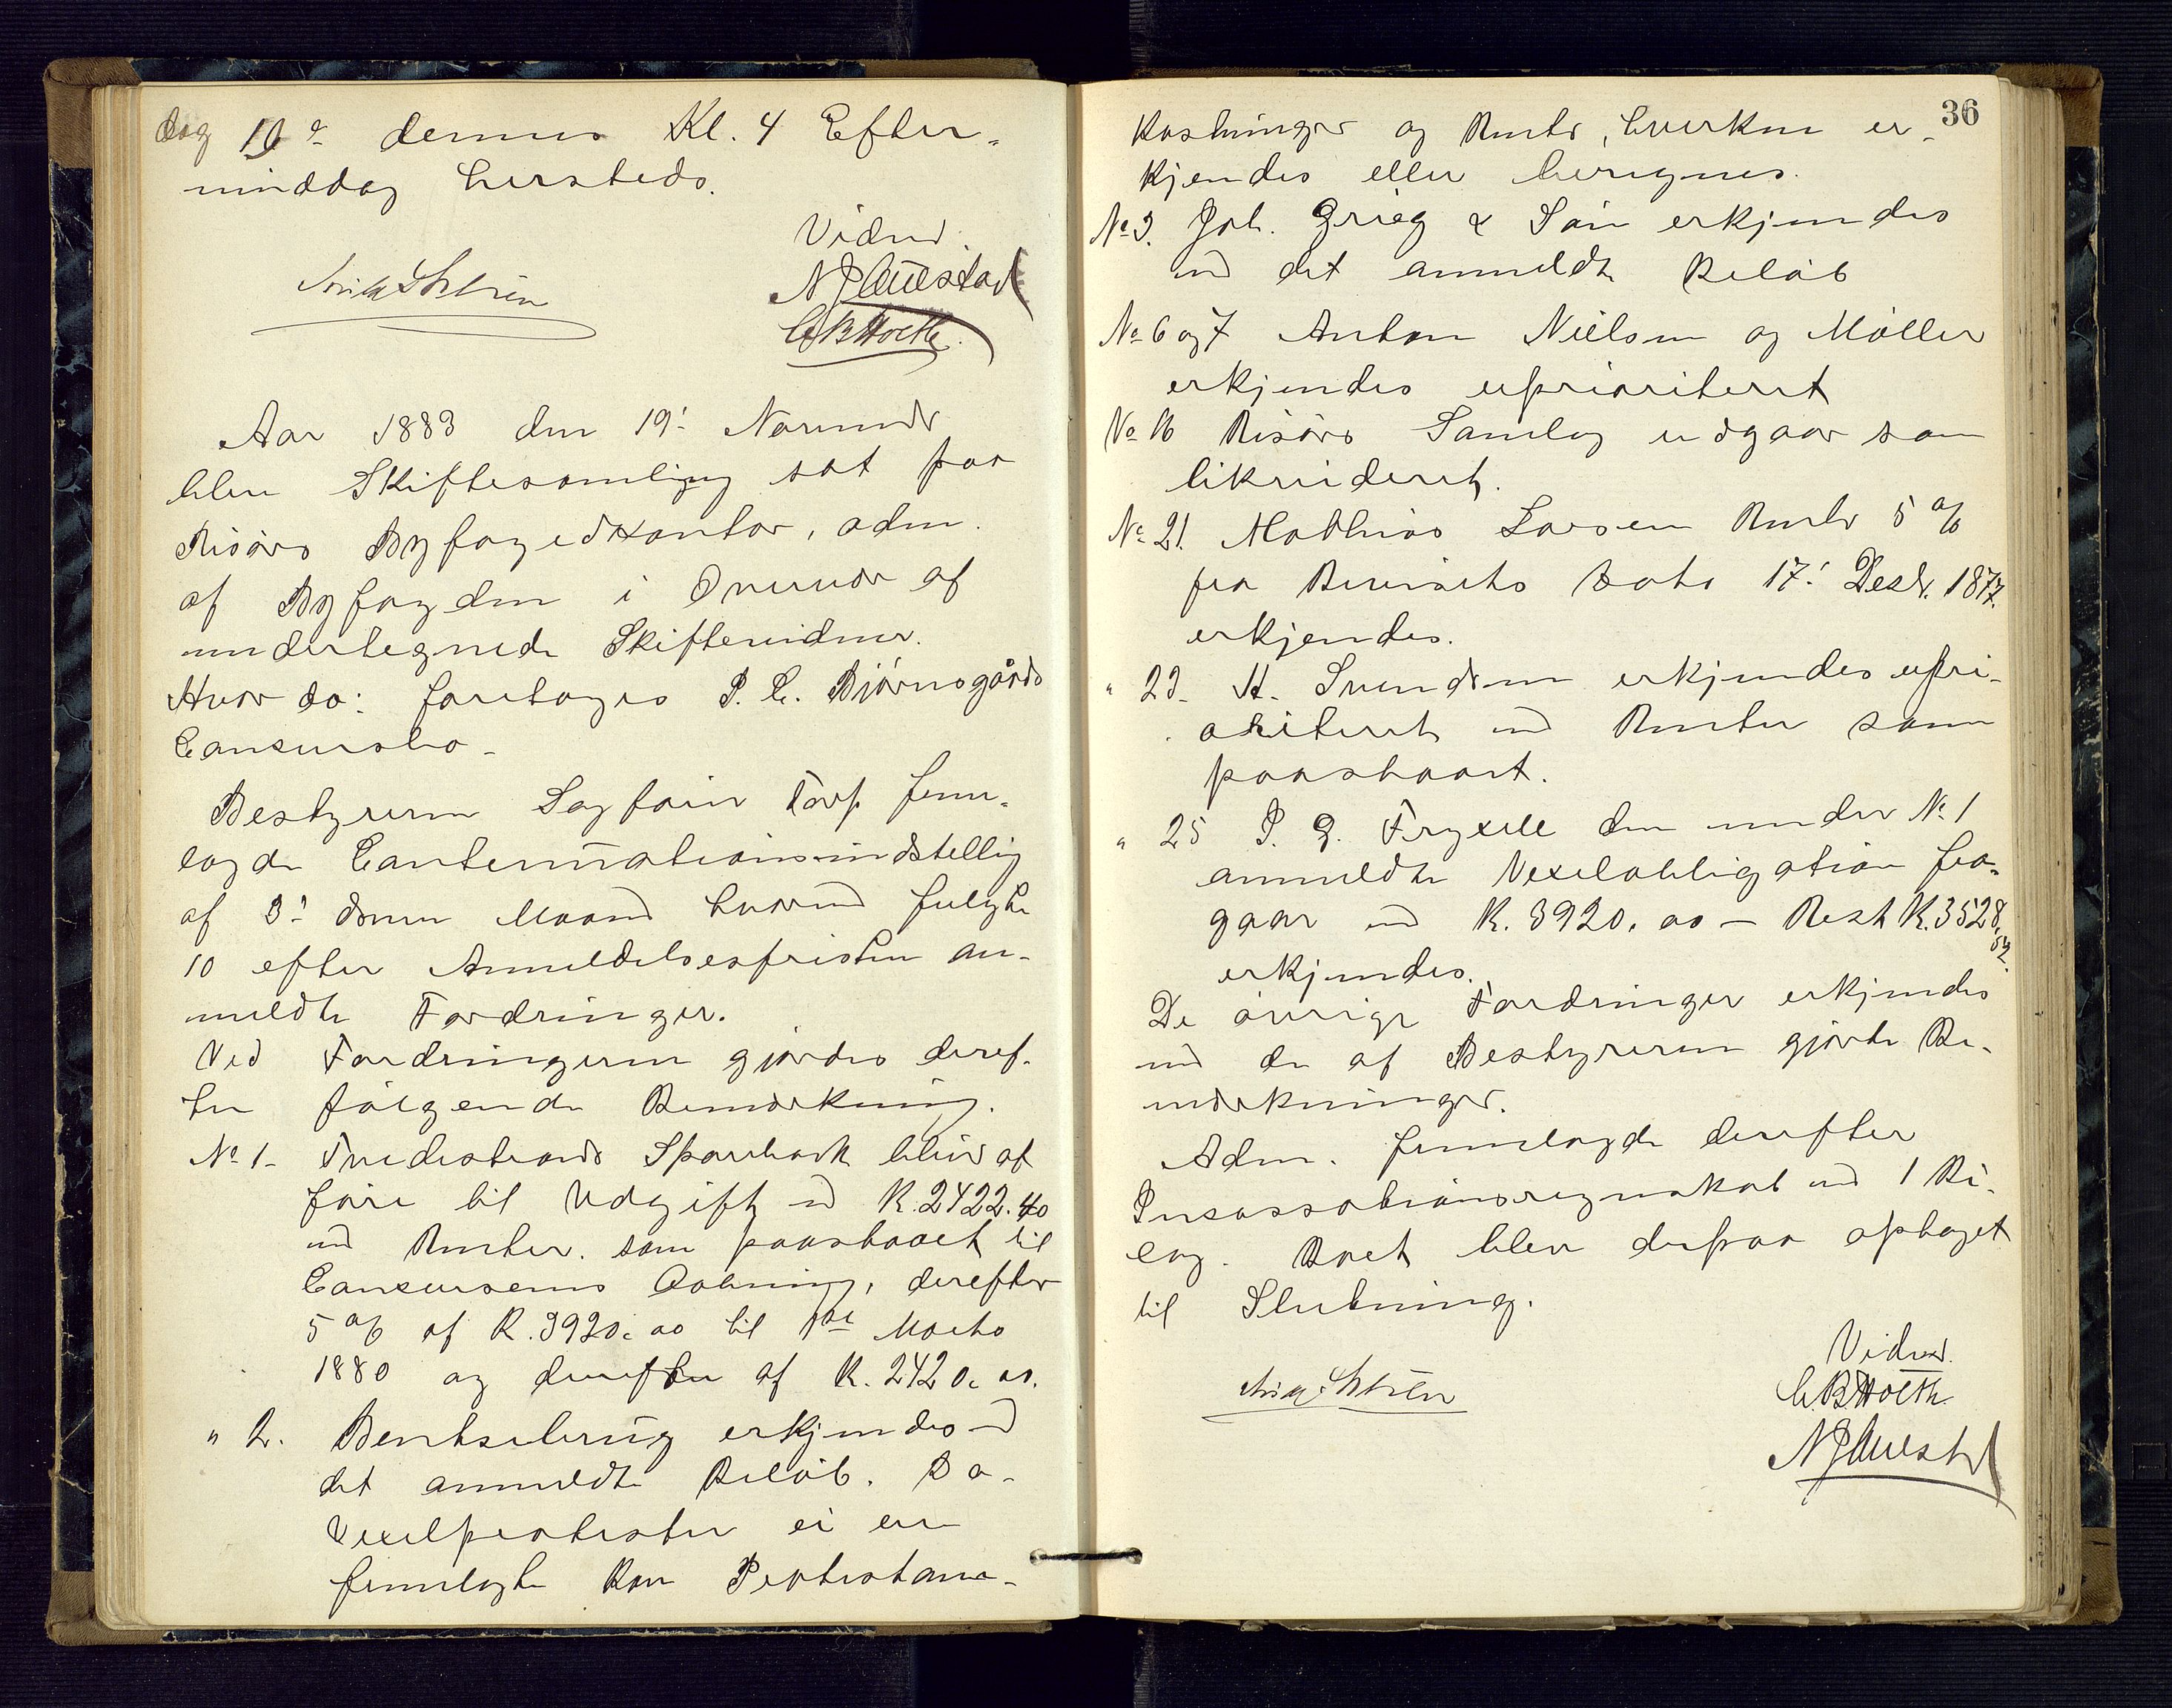 dag 19de dennes Kl. 4 Efter-
middag hersteds.
Vidner
N J Auestad
C B Holth
Aar 1883 den 19! Novembr
blev Skiftesamling sat paa
Risørs Byfogedkontor, adm.
af Byfogden i Overvær af
undertegnede Skiftevidner.
Hvor da: foretoges P. C. Bjørnsgårds
Concursbo -
Bestyreren Sagfører Torp frem-
lagde indstilling
af 3! denne Maaned hvorved fulgte
10 efter Anmeldelsesfristen an-
meldte Fordringer.
Ved Fordringerne gjordes deref-
ter følgende Bemærkning.
No 1 - Tvedestrands Sparebank bliver at
føre til Udgift med K. 2422.40
med Renter som paastaaet til
Concursens Aabning, derefter
5 % af K. 3920.00 til 1ste Marts
1880 og derefter af K. 2420.00.
" 2. Bentsebrug erkjendes med
det anmeldte Beløb. Da
Vexelprotester ei er
fremlagte kan Protestom-
36
kostninger og Renter, hverken er-
kjendes eller beregnes.
No 3. Joh. Grieg & Søn erkjendes
med det anmeldte Beløb
No 6 og 7 Anton Nielsen og Møller
erkjendes uprioriteret
No 16 Risørs Samlag udgaar som
likvideret.
No 21. Mathias Larsen Renter 5 %
fra Bevisets Dato 17! Desbr. 1877.
erkjendes.
" 23 - H. Svendsen erkjendes upri-
oriteret med Renter som
paastaaet.
" 25 P. G. Fryxell den under No 1
anmeldte Vexelobligation fra-
gaar med K. 3920.00 - Rest K. 3528,52.
erkjendes.
De øvrige Fordringer erkjendes
med de af Bestyreren gjorte Be-
mærkninger.
Adm. fremlagde derefter
Incassationsregnskab med 1 Bi-
lag. Boet blev derpaa optaget
til Slutning.
Vidner
C. B. Holth
N J Auestad